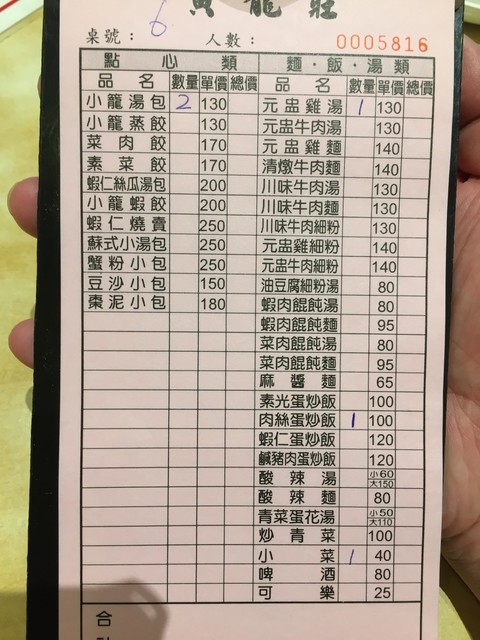 黃龍莊
桌號： 6 人數： 0005816
點心類 麵·飯·湯類
品名 數量 單價 總價 品名 數量 單價 總價
小籠湯包 2 130 元盅雞湯 1 130
小籠蒸餃 130 元盅牛肉湯 130
菜肉餃 170 元盅雞麵 140
素菜餃 170 清燉牛肉麵 140
蝦仁絲瓜湯包 200 川味牛肉湯 130
小籠蝦餃 200 川味牛肉麵 130
蝦仁燒賣 250 川味牛肉細粉 130
蘇式小湯包 250 元盅雞細粉 140
蟹粉小包 250 元盅牛肉細粉 140
豆沙小包 150 油豆腐細粉湯 80
棗泥小包 180 蝦肉餛飩湯 80
蝦肉餛飩麵 95
菜肉餛飩湯 80
菜肉餛飩麵 95
麻醬麵 65
素光蛋炒飯 100
肉絲蛋炒飯 1 100
蝦仁蛋炒飯 120
鹹豬肉蛋炒飯 120
酸辣湯 小60 大150
酸辣麵 80
青菜蛋花湯 小50 大110
炒青菜 100
小菜 1 40
啤酒 80
可樂 25
合